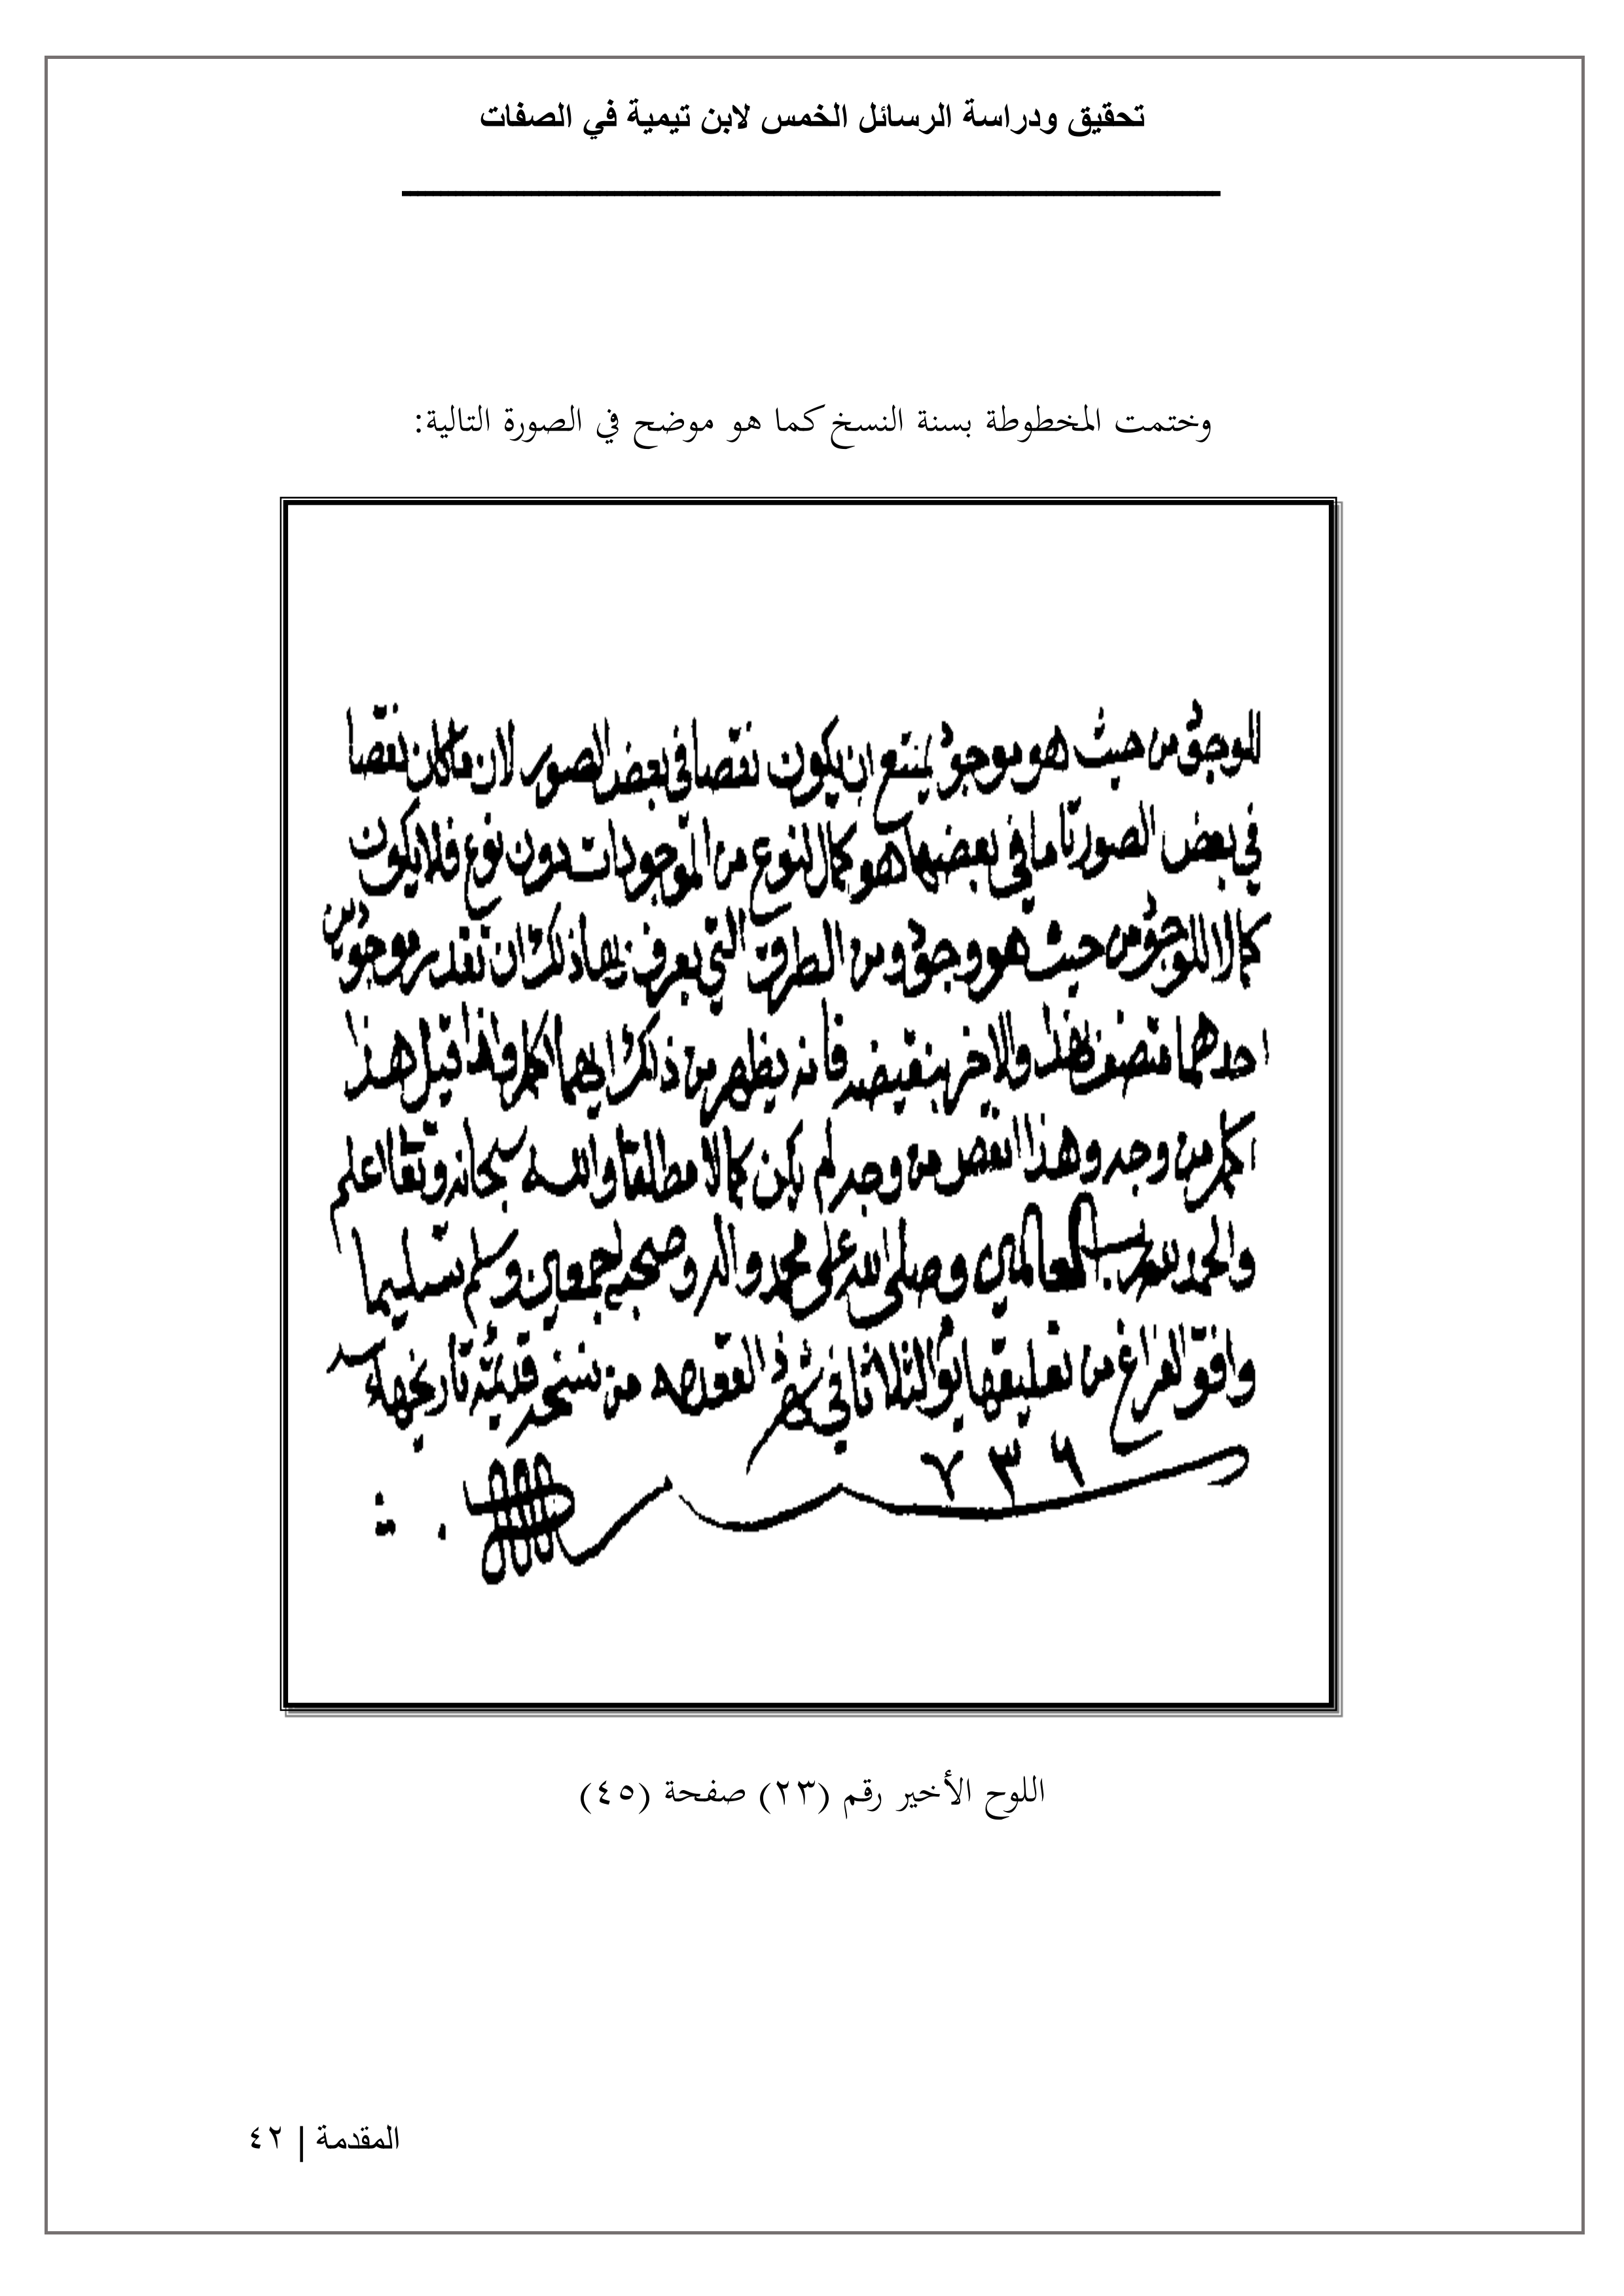 تحقيق ودراسة الرسائل الخمس لابن تيمية في الصفات
وختمت المخطوطة بسنة النسخ كما هو موضح في الصورة التالية:
للوجود من حيث هو موجود يمتنع ان يكون نقصا في بعض الصور لان ما كان نقصا
في بعض الصور تاما في بعضها هو كمال لنوع من الموجودات دون نوع فلا يكون
كمالا للوجود من حيث هو وجود ومن الطرق التي يعرف بها ذلك ان تقدر موجودين
احدهما متصف بهذا والاخر بنقيضه فانه يظهر من ذلك ايهما اكمل واذا قيل هذا
اكمل من وجه وهذا انقص من وجه لم يكن كمالا مطلقا والله سبحانه وتعالى اعلم
والحمد لله رب العالمين وصلى الله على محمد واله وصحبه اجمعين وسلم تسليما
وافق الفراغ من تعليقها يوم الثلاثا في شهر ذي القعده من نسخة قديمة تاريخها سنة
٧٣٦
اللوح الأخير رقم (٢٣) صفحة (٤٥)
المقدمة | ٤٢